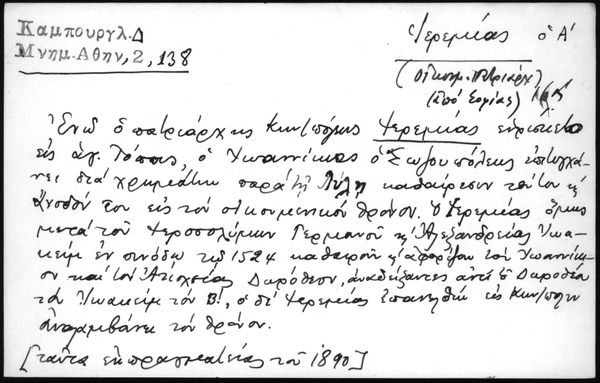 Καμπουργλ. Δ
Μνημ. Αθην, 2, 138
Ἱερεμίας ὁ Α'
(οἰκουμ. πατριάρχ)
(ἀπό Σοφίας)
Ἐνῷ ὁ πατριάρχης Κων/πόλεως Ἱερεμίας εὑρίσκετο
εἰς ἁγ. Τόπους, ὁ Ἰωαννίκιος ὁ Σωζουπόλεως ἐπιτυγχά
νει διά χρημάτων παρά τῇ Πύλῃ καθαίρεσιν τούτου κ
ἄνοδόν του εἰς τόν οἰκουμενικόν θρόνον. Ὁ Ἱερεμίας ὅμως
μετά τοῦ Ἱεροσολύμων Γερμανοῦ κ Ἀλεξανδρείας Ἰωα
κείμ ἐν συνόδῳ τῷ 1524 καθαιροῦν κ ἀφορίζουν τόν Ἰωαννίκι
ον καί τόν Ἀντιοχείας Δωρόθεον, ἀναδείξαντες ἀντί τοῦ Δωροθέου
τόν Ἰωακείμ τόν Β', ὁ δέ Ἱερεμίας ἐπανελθών εἰς Κων/πολιν
ἀναλαμβάνει τόν θρόνον.
[ταῦτα ἐκ πραγματείας τοῦ 1890]